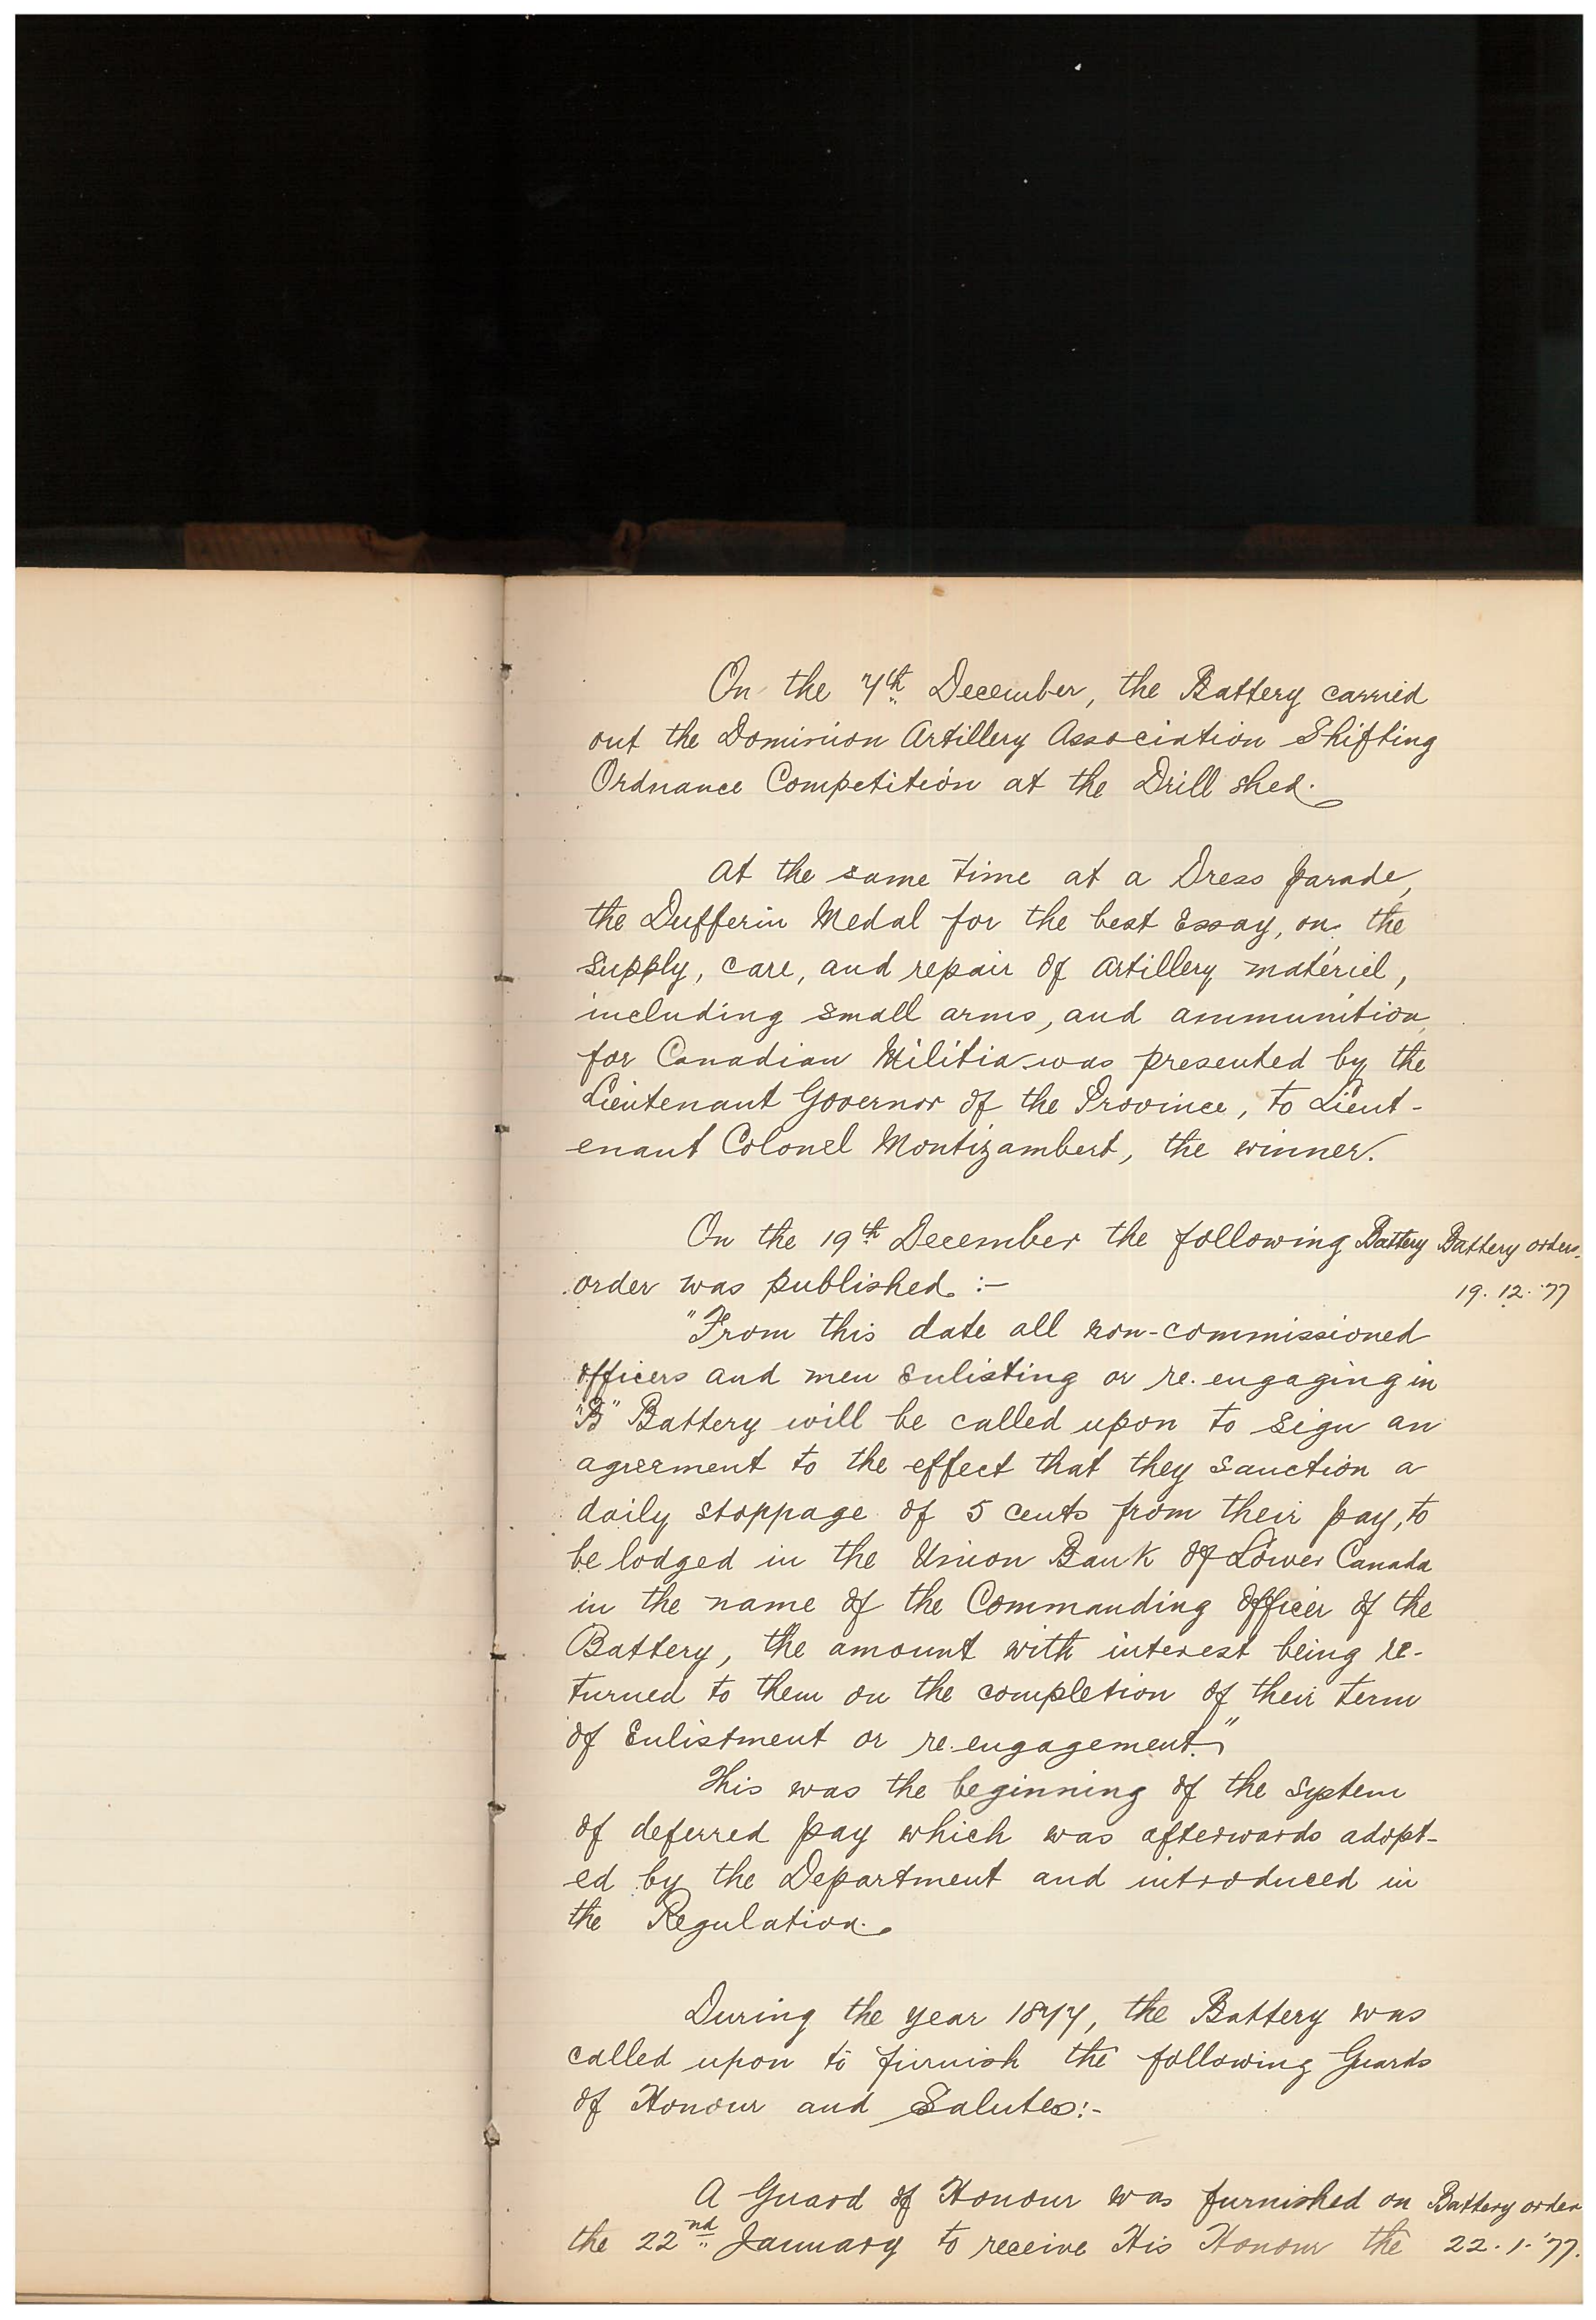 On the 7th December, the Battery carried
out the Dominion Artillery Association Shifting
Ordnance Competition at the Drill shed.
At the same time at a Dress parade,
the Dufferin Medal for the best Essay, on the
supply, care, and repair of Artillery matériel,
including small arms, and ammunition,
for Canadian Militia was presented by the
Lieutenant Governor of the Province, to Lieut-
enant Colonel Montizambert, the winner.
On the 19th December the following Battery Battery orders.
order was published :- 19. 12. '77
"From this date all non-commissioned
officers and men Enlisting or re-engaging in
"B" Battery will be called upon to sign an
agreement to the effect that they sanction a
daily stoppage of 5 cents from their pay, to
be lodged in the Union Bank of Lower Canada
in the name of the Commanding Officer of the
Battery, the amount with interest being re-
turned to them on the completion of their term
of Enlistment or re-engagement."
This was the beginning of the system
of deferred pay which was afterwards adopt-
ed by the Department and introduced in
the Regulation.
During the year 1877, the Battery was
called upon to furnish the following Guards
of Honour and Salutes:-
A Guard of Honour was furnished on Battery order
the 22nd January to receive His Honour the 22. 1. '77.